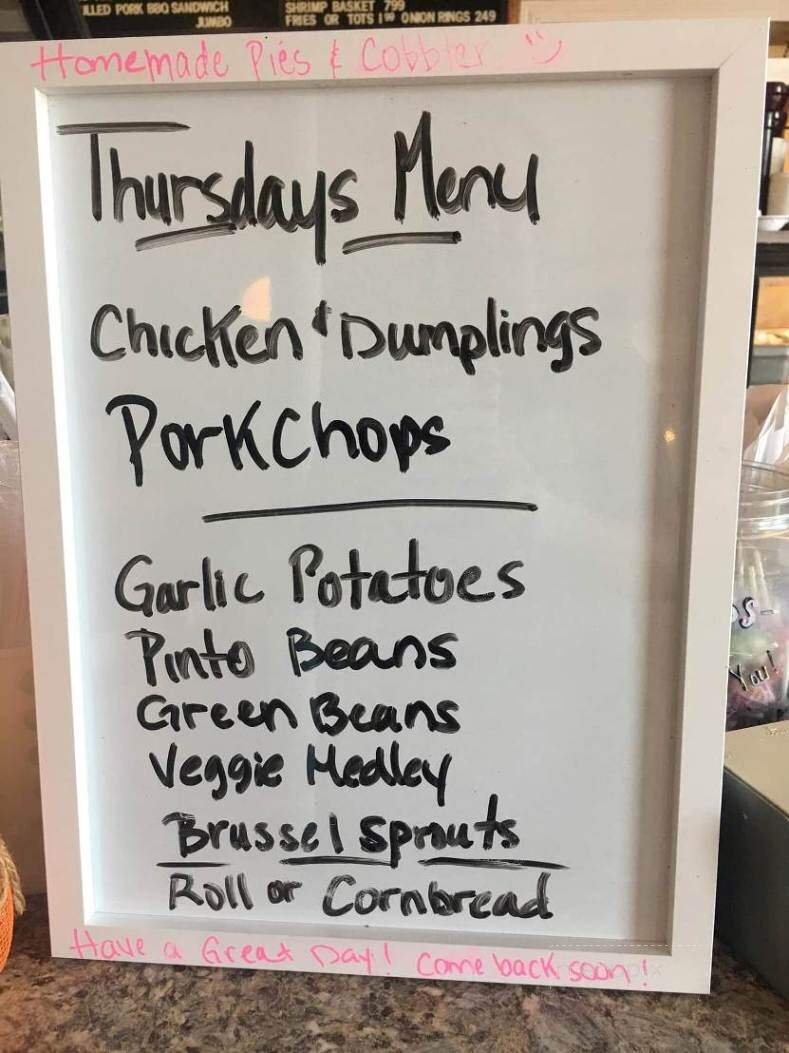 PORK BBQ SANDWICH
JUMBO
SHRIMP BASKET 799
FRIES OR TOTS 1⁹⁹ ONION RINGS 249
Homemade Pies & Cobbler
Thursdays Menu
Chicken & Dumplings
Pork Chops
Garlic Potatoes
Pinto Beans
Green Beans
Veggie Medley
Brussel Sprouts
Roll or Cornbread
Have a Great Day! Come back soon!
You!